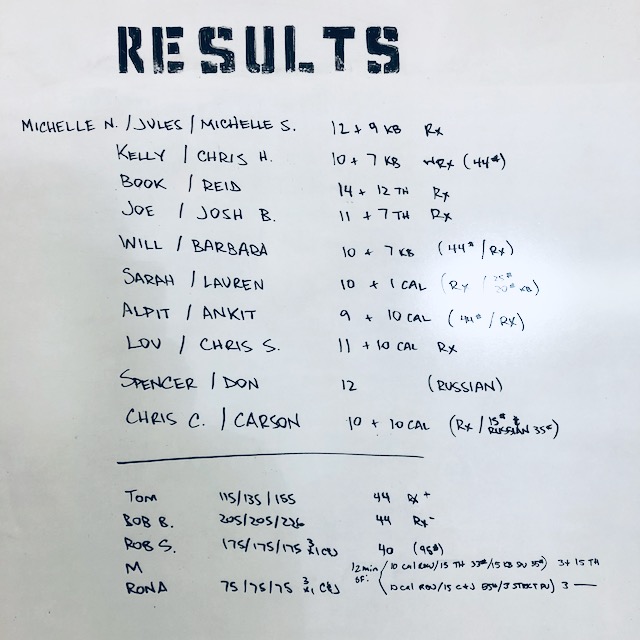 RESULTS
MICHELLE N. / JULES / MICHELLE S. 12 + 9 KB Rx
KELLY / CHRIS H. 10 + 7 KB Rx (44#)
BOOK / REID 14 + 12 TH Rx
JOE / JOSH B. 11 + 7 TH Rx
WILL / BARBARA 10 + 7 KB (44# / Rx)
SARAH / LAUREN 10 + 1 CAL (Rx / 25# 20# KB)
ALPIT / ANKIT 9 + 10 CAL (44# / Rx)
LOU / CHRIS S. 11 + 10 CAL Rx
SPENCER / DON 12 (RUSSIAN)
CHRIS C. / CARSON 10 + 10 CAL (Rx / 15# & RUSSIAN 35#)
TOM 115/135/155 44 Rx+
BOB B. 205/205/226 44 Rx-
ROB S. 175/175/175 40 (95#)
M 12 min / 10 CAL ROW/15 TH 33#/15 KB SU 35#) 3 + 15 TH
RONA 75/75/75 OF: (10 CAL ROW/15 C+J 55#/ 3